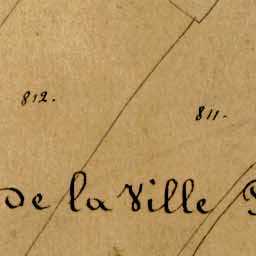 812.
811.
de la Ville